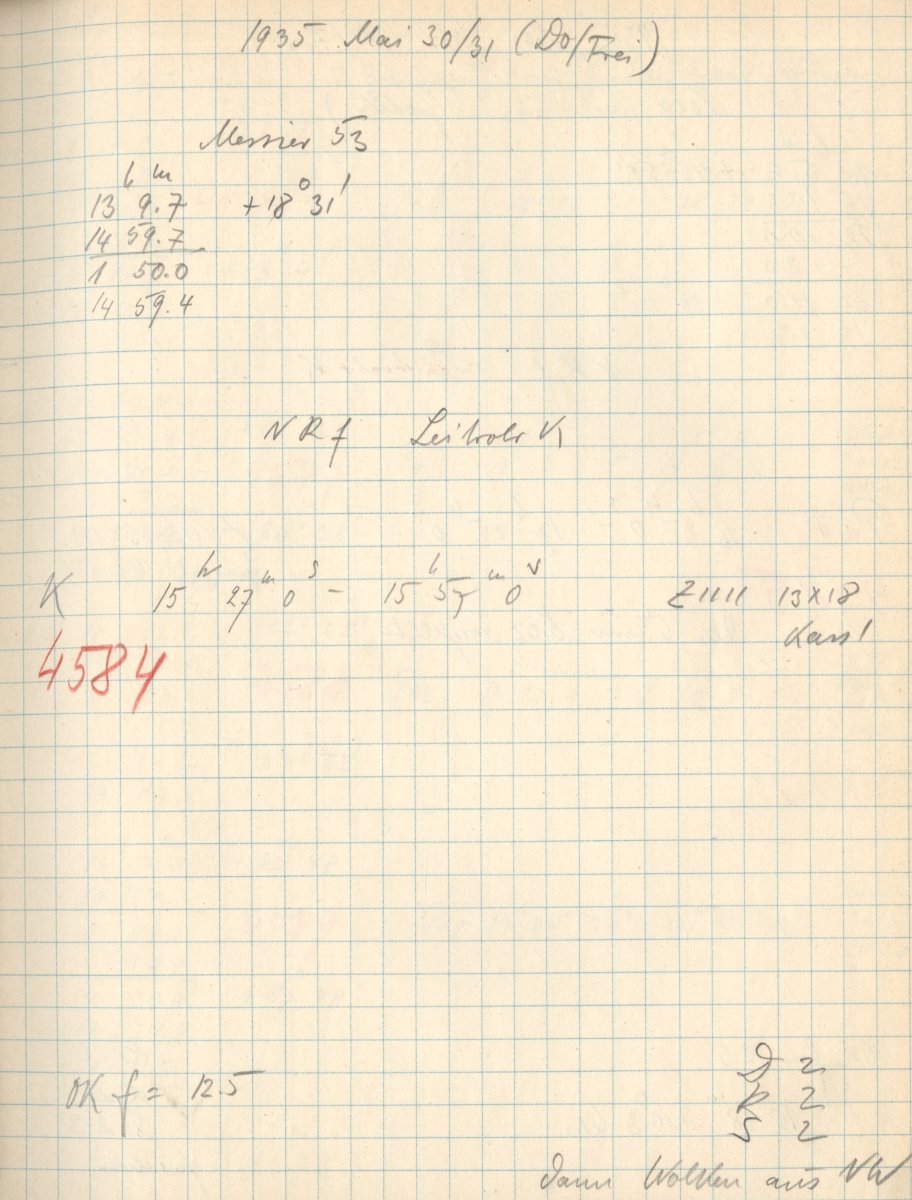 1935 Mai 30/31 (Do/Frei)
Messier 53
h m
13 9.7 +18° 31'
14 59.7
1 50.0
14 59.4
NRf Leitrohr V1
K 15h 27m 0s - 15h 57m 0s Z1111 13x18
Kass 1
4584
OK f = 12.5
D 2
R 2
S 2
Dann Wolken aus NW